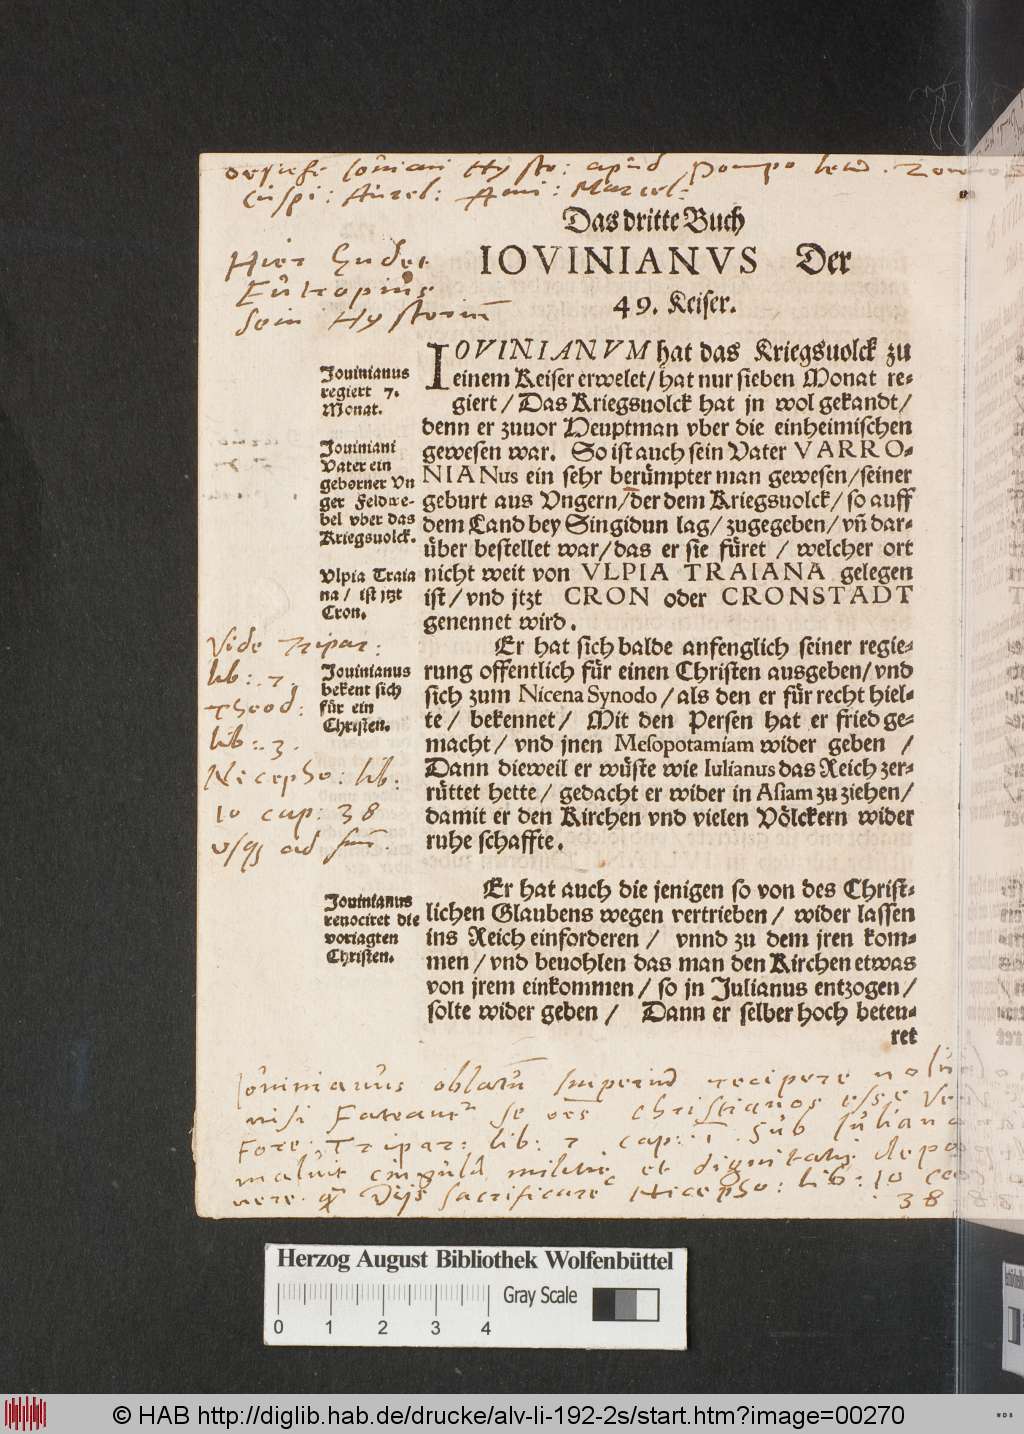 Hystor: apud Pompo
Cuspi: Aurel: Marcel:
Das dritte Buch
IOVINIANVS Der
49. Keiser.
Hier Endet
Eutropius
sein Hystorim
IOVINIANVM hat das Kriegsuolck zu
einem Keiser erwelet/ hat nur sieben Monat re-
giert/ Das Kriegsuolck hat jn wol gekandt/
denn er zuuor Heuptman vber die einheimischen
gewesen war. So ist auch sein Vater VARRO-
NIANus ein sehr berümpter man gewesen/ seiner
geburt aus Vngern/ der dem Kriegsuolck/ so auff
dem Land bey Singidun lag/ zugegeben/ vñ dar-
über bestellet war/ das er sie füret / welcher ort
nicht weit von VLPIA TRAIANA gelegen
ist/ vnd jtzt CRON oder CRONSTADT
genennet wird.
Jouinianus
regiert 7.
Monat.
Jouiniani
Vater ein
geborner Vn
ger Feldwe-
bel vber das
Kriegsuolck.
Vlpia Traia
na/ ist jtzt
Cron.
Er hat sich balde anfenglich seiner regie-
rung offentlich für einen Christen ausgeben/ vnd
sich zum Nicena Synodo/ als den er für recht hiel-
te/ bekennet/ Mit den Persen hat er fried ge-
macht/ vnd jnen Mesopotamiam wider geben /
Dann dieweil er wüste wie Iulianus das Reich zer-
rüttet hette/ gedacht er wider in Asiam zu ziehen/
damit er den Kirchen vnd vielen Völckern wider
ruhe schaffte.
Jouinianus
bekent sich
für ein
Christen.
Vide Tripar:
lib: 7
Theod:
lib: 3.
Nicepho: lib:
10 cap: 38
usq ad
Er hat auch die jenigen so von des Christ-
lichen Glaubens wegen vertrieben/ wider lassen
ins Reich einforderen/ vnnd zu dem jren kom-
men/ vnd beuohlen das man den Kirchen etwas
von jrem einkommen/ so jn Julianus entzogen/
solte wider geben/ Dann er selber hoch beteu-
ret
Jouinianus
reuociret die
voriagten
Christen.
Jouinianus oblatum Imperiũ recipere
nisi Fateantur se oẽs christianos esse
Fore: Tripar: lib: 7 cap: 1. Sub
maluit cingulũ militie et dignitatis
Dijs sacrificare Nicepho: lib: 10
38
Herzog August Bibliothek Wolfenbüttel
Gray Scale
0 1 2 3 4
© HAB http://diglib.hab.de/drucke/alv-li-192-2s/start.htm?image=00270